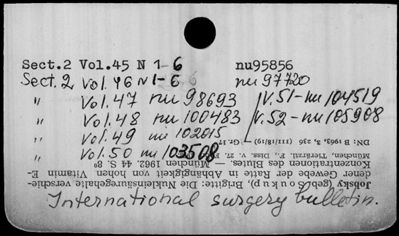 Sect.2 Vol.45 N 1-6 nu95856
Sect.2 Vol.46 N1-6 nu 97720
" Vol.47 nu 98693 V.51-nu 104519
" Vol.48 nu 100483 V.52-nu 105908
" Vol.49 nu 102015
" Vol.50 nu 103508
International surgery bulletin.
Jobsky (geb. Prokoup), Brigitte: Die Nukleinsäuregehalte verschie-
dener Gewebe der Ratte in Abhängigkeit von hohen Vitamin E-
Konzentrationen des Blutes. — München 1962. 44 S. 8°
München, Tierärztl. F., Diss. v. 27.
DN: B 1963, 3 236 (III/18/19) — Gr.-17